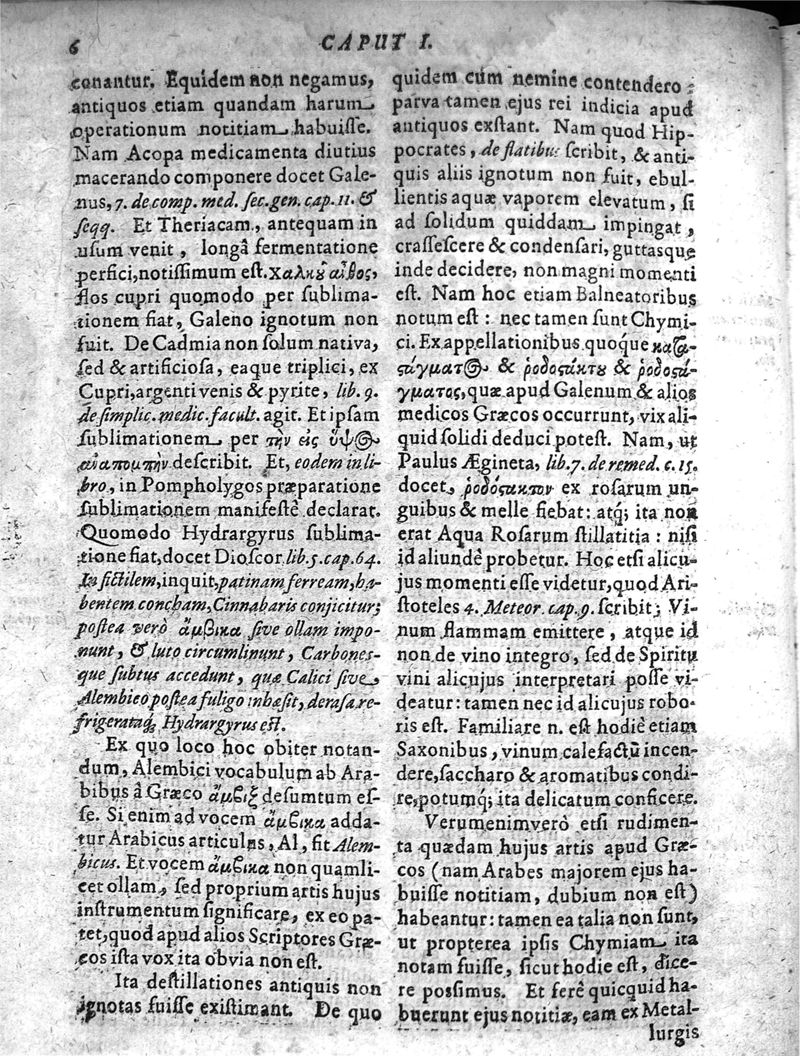 6
CAPUT I.
conantur. Equidem non negamus,
antiquos etiam quandam harum
operationum notitiam habuiſſe.
Nam Acopa medicamenta diutius
macerando componere docet Gale-
nus, 7. de comp. med. ſec. gen. cap. 11. &
ſeqq. Et Theriacam, antequam in
uſum venit, longâ fermentatione
perfici, notiſſimum eſt. χαλκοῦ ἄνθος,
flos cupri quomodo per ſublima-
tionem fiat, Galeno ignotum non
fuit. De Cadmia non ſolum nativa,
ſed & artificioſa, eaque triplici, ex
Cupri, argenti venis & pyrite, lib. 9.
de ſimplic. medic. facult. agit. Et ipſam
ſublimationem per τὴν εἰς ὕψος
ἀναπομπὴν deſcribit. Et, eodem in li-
bro, in Pompholygos præparatione
ſublimationem manifeſtè declarat.
Quomodo Hydrargyrus ſublima-
tione fiat, docet Dioſcor. lib. 5. cap. 64.
In fictilem, inquit, patinam ferream, ha-
bentem concham, Cinnabaris conjicitur;
poſtea verò ἄμβικα ſive ollam impo-
nunt, & luto circumlinunt, Carbones-
que ſubtus accedunt, quæ Calici ſive
Alembico poſtea fuligo inhæſit, deraſa re-
frigerataq́; Hydrargyrus eſt.
Ex quo loco hoc obiter notan-
dum, Alembici vocabulum ab Ara-
bibus à Græco ἄμβιξ deſumtum eſ-
ſe. Si enim ad vocem ἄμβικα adda-
tur Arabicus articulus, Al, fit Alem-
bicus. Et vocem ἄμβικα non quamli-
cet ollam, ſed proprium artis hujus
inſtrumentum ſignificare, ex eo pa-
tet, quod apud alios Scriptores Græ-
cos iſta vox ita obvia non eſt.
Ita deſtillationes antiquis non
ignotas fuiſſe exiſtimant. De quo
quidem cum nemine contendero:
parva tamen ejus rei indicia apud
antiquos exſtant. Nam quod Hip-
pocrates, de flatibus ſcribit, & anti-
quis aliis ignotum non fuit, ebul-
lientis aquæ vaporem elevatum, ſi
ad ſolidum quiddam impingat,
craſſeſcere & condenſari, guttasque
inde decidere, non magni momenti
eſt. Nam hoc etiam Balneatoribus
notum eſt: nec tamen ſunt Chymi-
ci. Ex appellationibus quoque κατα-
ςάγματος & ῥοδοςάκτου & ῥοδοςά-
γματος, quæ apud Galenum & alios
medicos Græcos occurrunt, vix ali-
quid ſolidi deduci poteſt. Nam, ut
Paulus Ægineta, lib. 7. de remed. c. 15.
docet, ῥοδόςακτον ex roſarum un-
guibus & melle fiebat: atq́; ita non
erat Aqua Roſarum ſtillatitia: niſi
id aliundè probetur. Hoc etſi alicu-
jus momenti eſſe videtur, quod Ari-
ſtoteles 4. Meteor. cap. 9. ſcribit; Vi-
num flammam emittere, atque id
non de vino integro, ſed de Spiritu
vini alicujus interpretari poſſe vi-
deatur: tamen nec id alicujus robo-
ris eſt. Familiare n. eſt hodiè etiam
Saxonibus, vinum calefactū incen-
dere, ſaccharo & aromatibus condi-
re, potumq́; ita delicatum conficere.
Verumenimverò etſi rudimen-
ta quædam hujus artis apud Græ-
cos (nam Arabes majorem ejus ha-
buiſſe notitiam, dubium non eſt)
habeantur: tamen ea talia non ſunt,
ut propterea ipſis Chymiam ita
notam fuiſſe, ſicut hodie eſt, dice-
re poſſimus. Et ferè quicquid ha-
buerunt ejus notitiæ, eam ex Metal-
lurgis